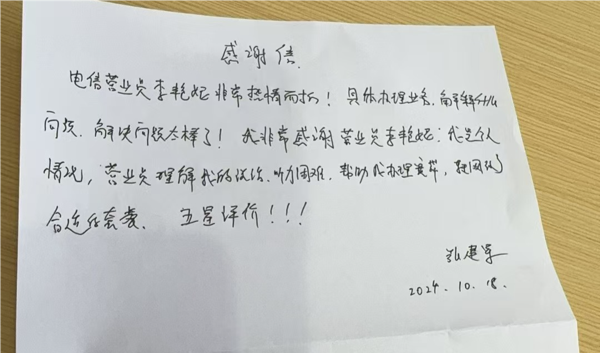 感谢信
电信营业员李艳妮非常热情而打！具体办理业务，解释什么
问题，解决问题太棒了！我非常感谢营业员李艳妮：我是个人
情况，营业员理解我的说话、听力困难，帮助我办理宽带，
合适任套餐。五星评价！！！
张建军
2024.10.18.